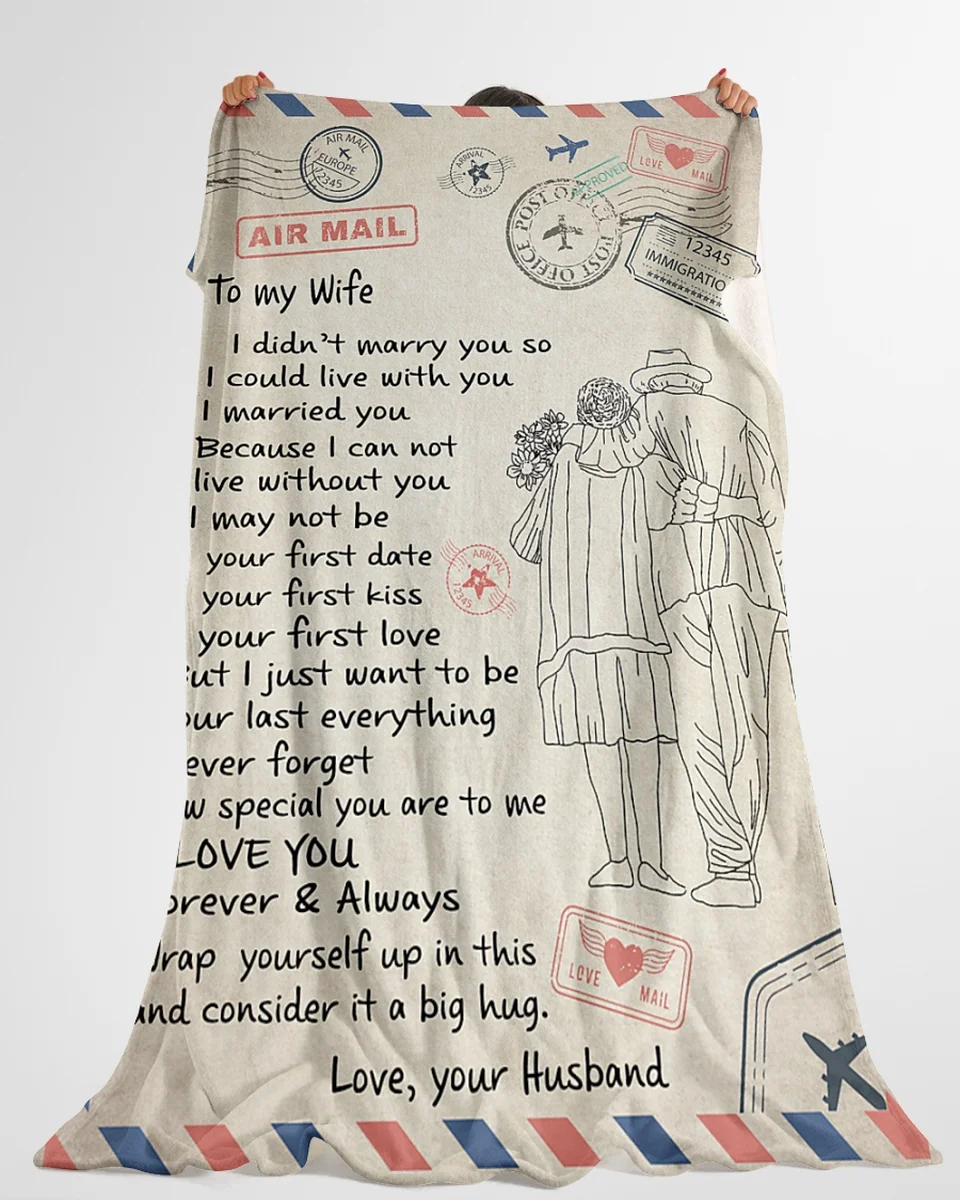 AIR MAIL
EUROPE
12345
ARRIVAL
12345
APPROVED
LOVE MAIL
POST OFFICE POST OFFICE
12345
IMMIGRATIO
AIR MAIL
To my Wife
I didn't marry you so
I could live with you
I married you
Because I can not
live without you
I may not be
your first date
your first kiss
your first love
ARRIVAL
12345
ut I just want to be
our last everything
ever forget
w special you are to me
LOVE YOU
orever & Always
rap yourself up in this
and consider it a big hug.
LOVE MAIL
Love, your Husband